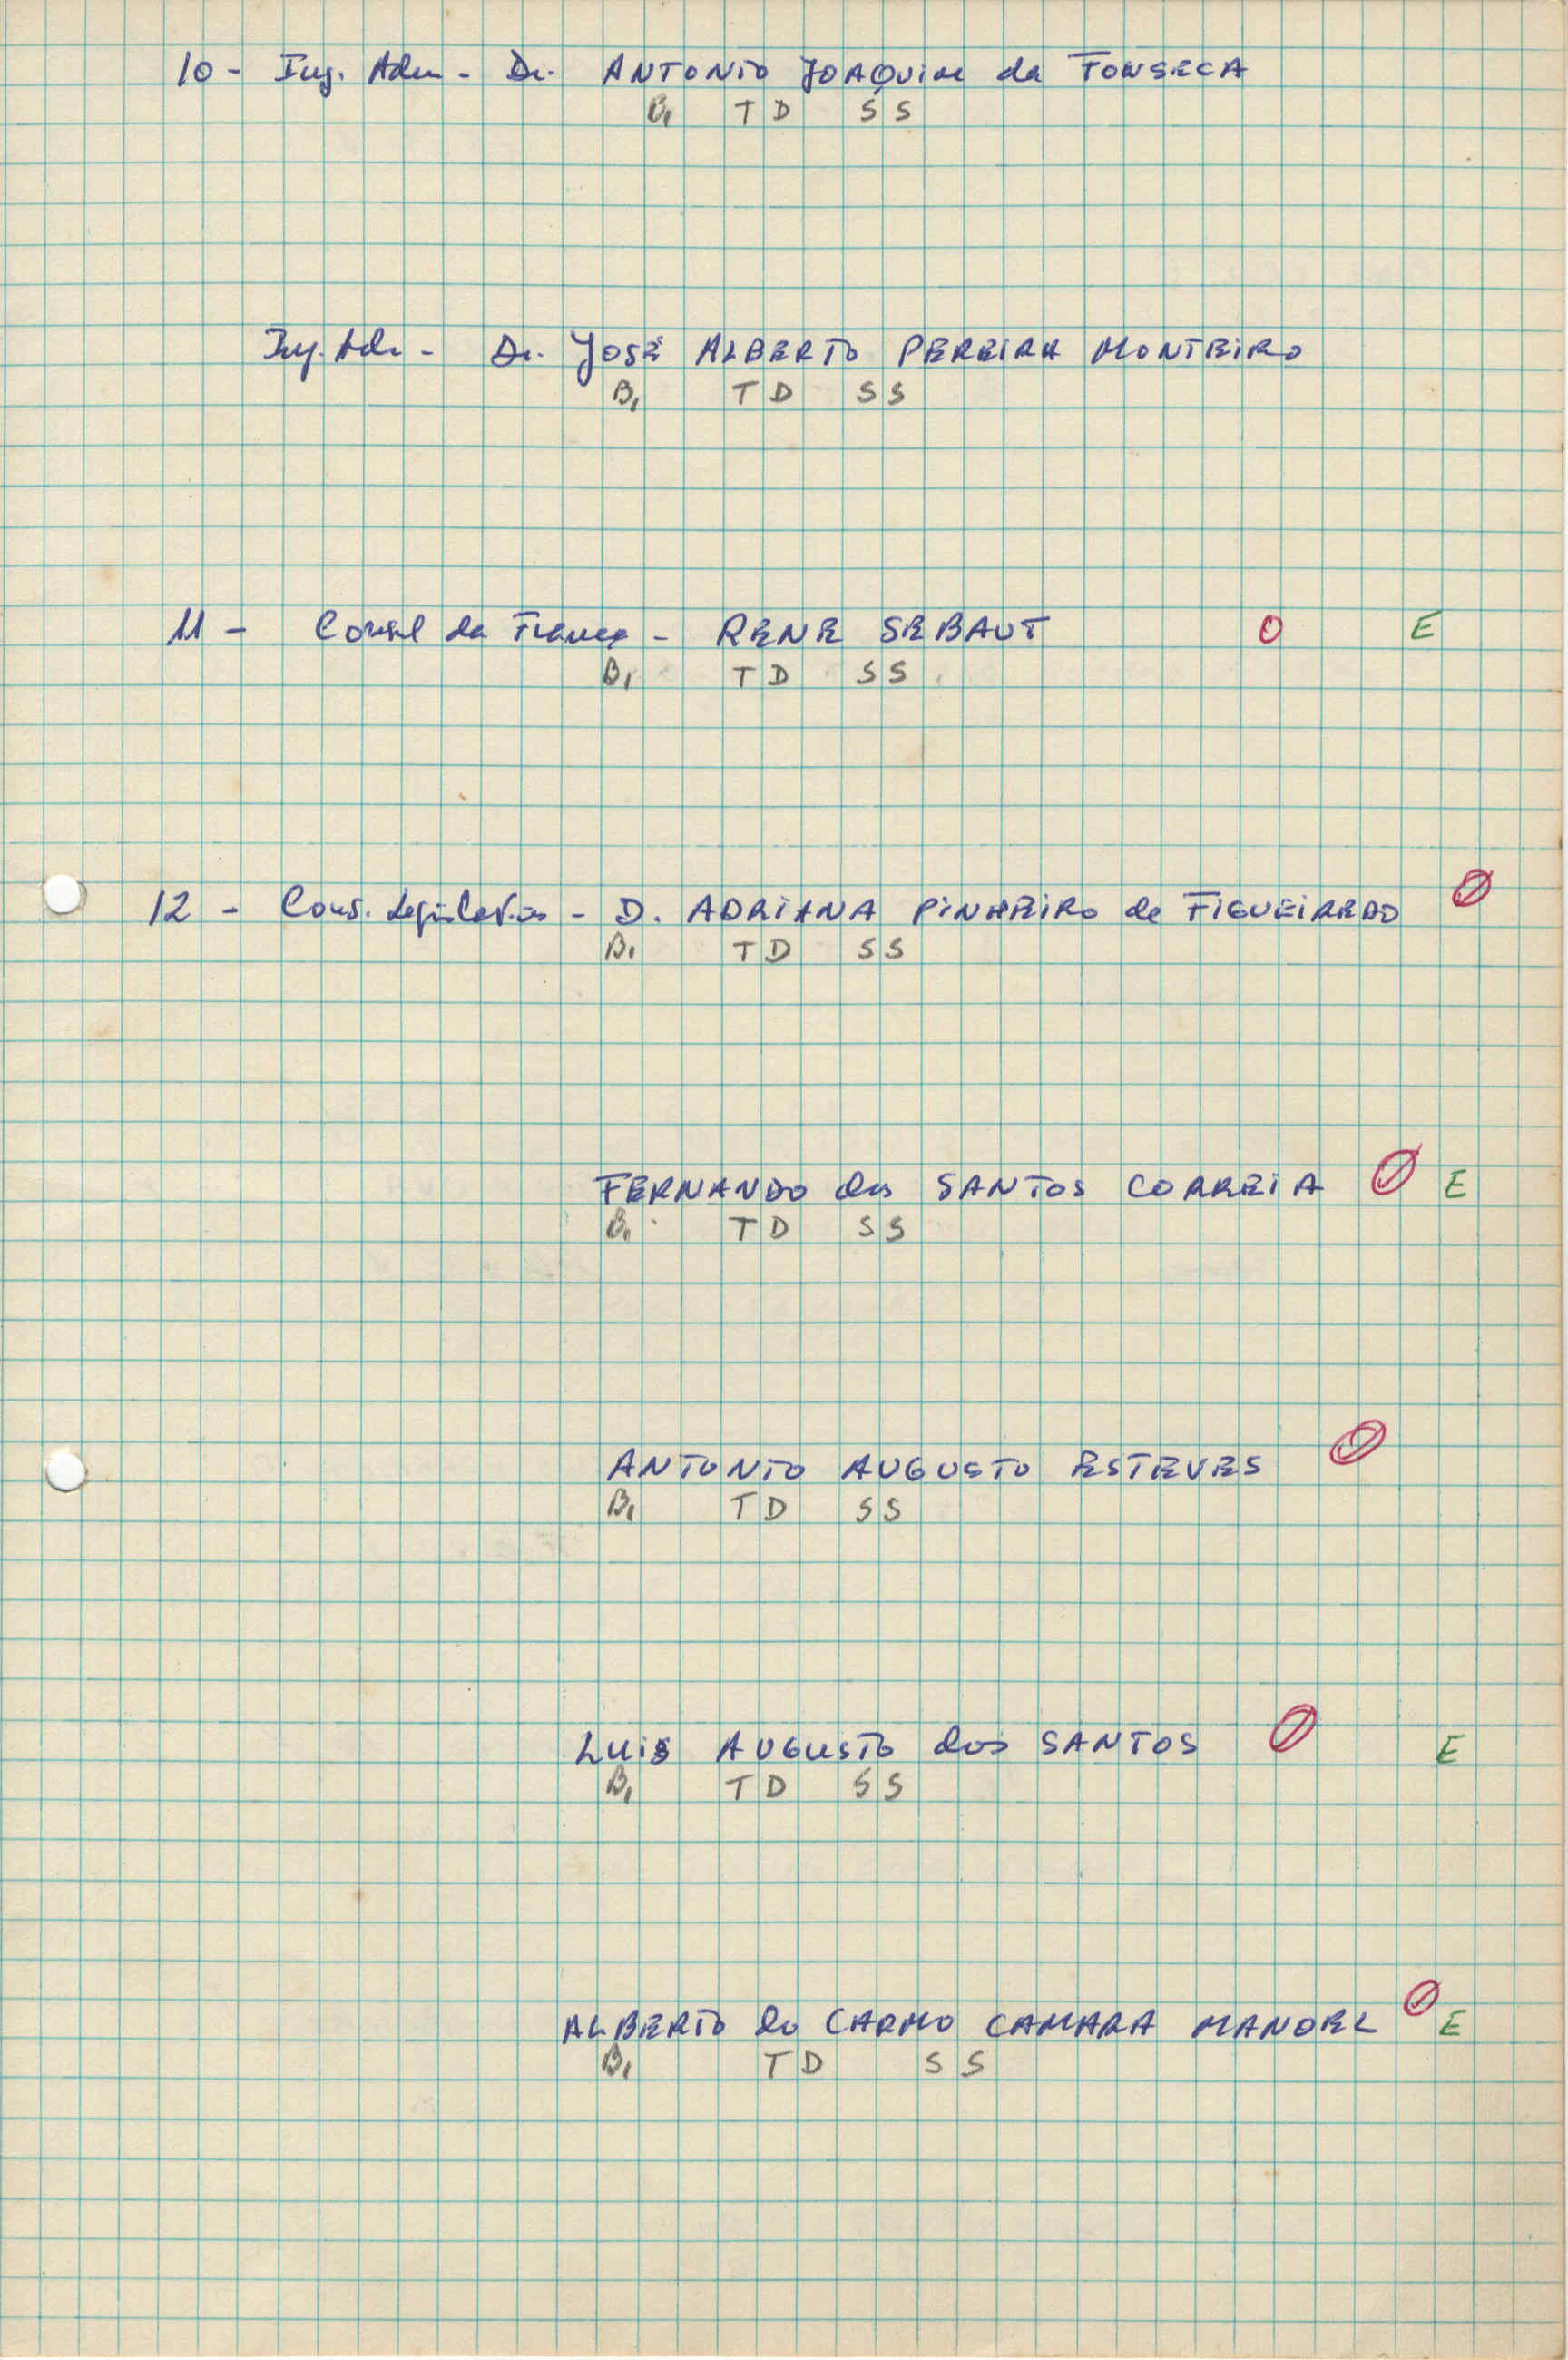 10 - Insp. Adm - Dr. ANTONIO JOAQUIM da FONSECA
B1 TD SS
Insp. Adm - Dr. JOSÉ ALBERTO PEREIRA MONTEIRO
B1 TD SS
11 - Consul da França - RENE SEBAUT O E
B1 TD SS
12 - Cons. Legislativo - D. ADRIANA PINHEIRO de FIGUEIREDO O
B1 TD SS
FERNANDO dos SANTOS CORREIA O E
B1 TD SS
ANTONIO AUGUSTO ESTEVES O
B1 TD SS
LUIS AUGUSTO dos SANTOS O E
B1 TD SS
ALBERTO do CARMO CAMARA MANOEL O E
B1 TD SS